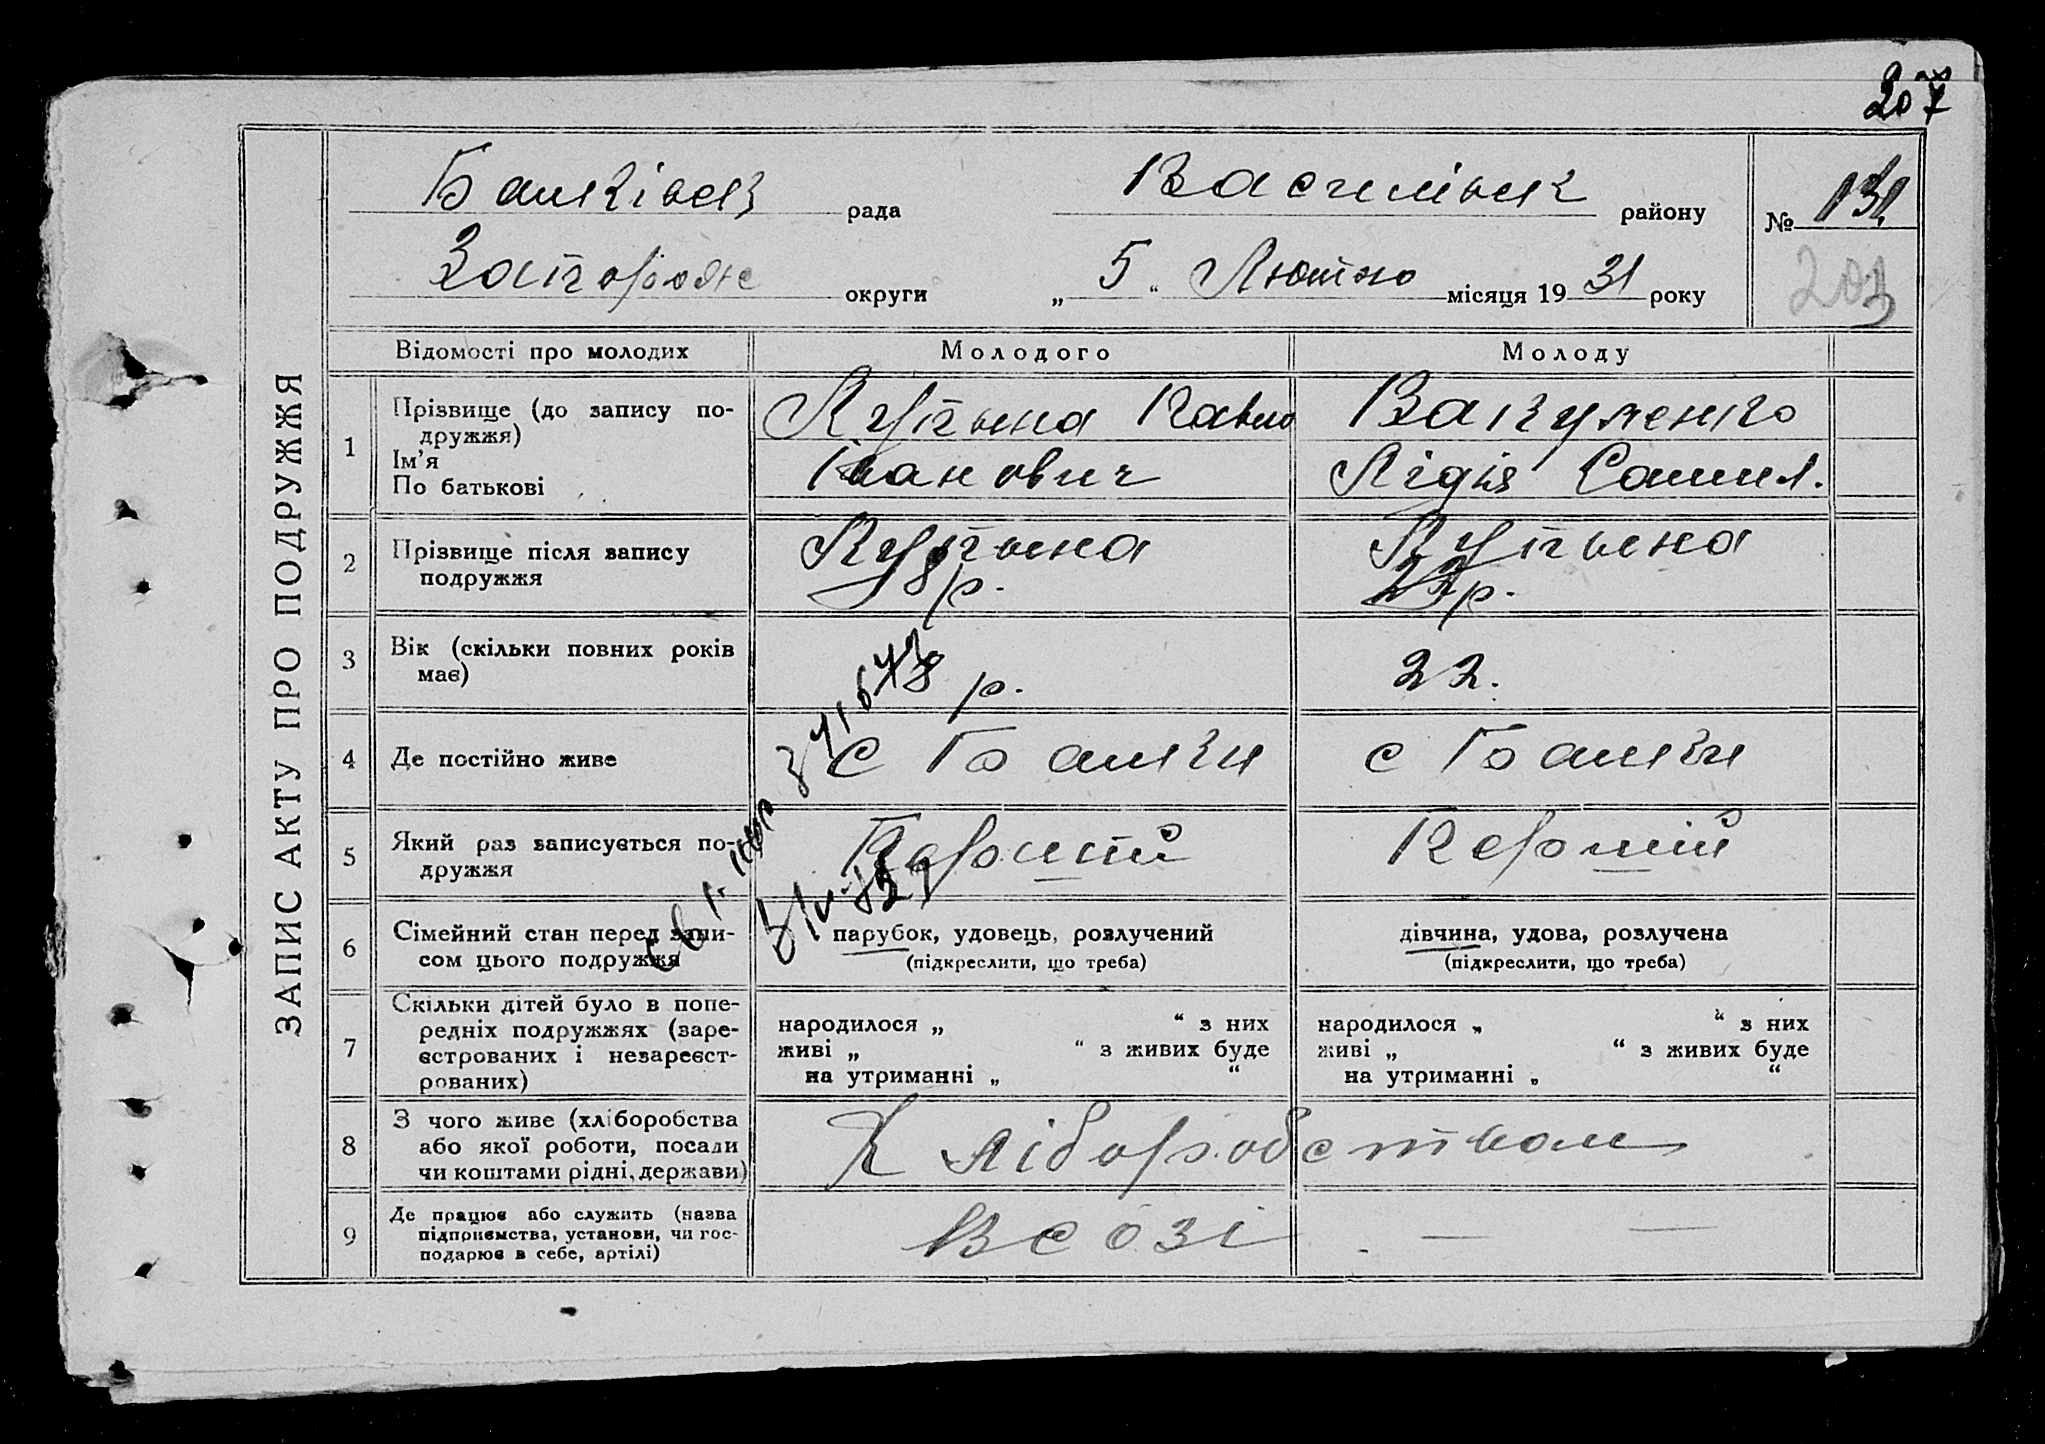 207
Балківськ рада Василівськ району № 131
Запоріж округи „ 5 “ Лютого місяця 19 31 року
203
ЗАПИС АКТУ ПРО ПОДРУЖЖЯ
Відомості про молодих Молодого Молоду
1 Прізвище (до запису по-
дружжя)
Ім'я
По батькові
Купьена Павло
Іванович
Вакуленко
Лідія Самил.
2 Прізвище після запису
подружжя
Купьена
18 р.
Купьена
22 р.
3 Вік (скільки повних років
має)
18 р.
22.
4 Де постійно живе
с Балки
с Балки
5 Який раз записується по-
дружжя
Перший
Перший
6 Сімейний стан перед запи-
сом цього подружжя
парубок, удовець, розлучений
(підкреслити, що треба)
дівчина, удова, розлучена
(підкреслити, що треба)
7 Скільки дітей було в попе-
редніх подружжях (заре-
єстрованих і незареєст-
рованих)
народилося „ “ з них
живі „ “ з живих буде
на утриманні „ “
народилося „ “ з них
живі „ “ з живих буде
на утриманні „ “
8 З чого живе (хліборобства
або якої роботи, посади
чи коштами рідні, держави)
Хліборобством
9 Де працює або служить (назва
підприємства, установи, чи гос-
подарює в себе, артілі)
В созі — —